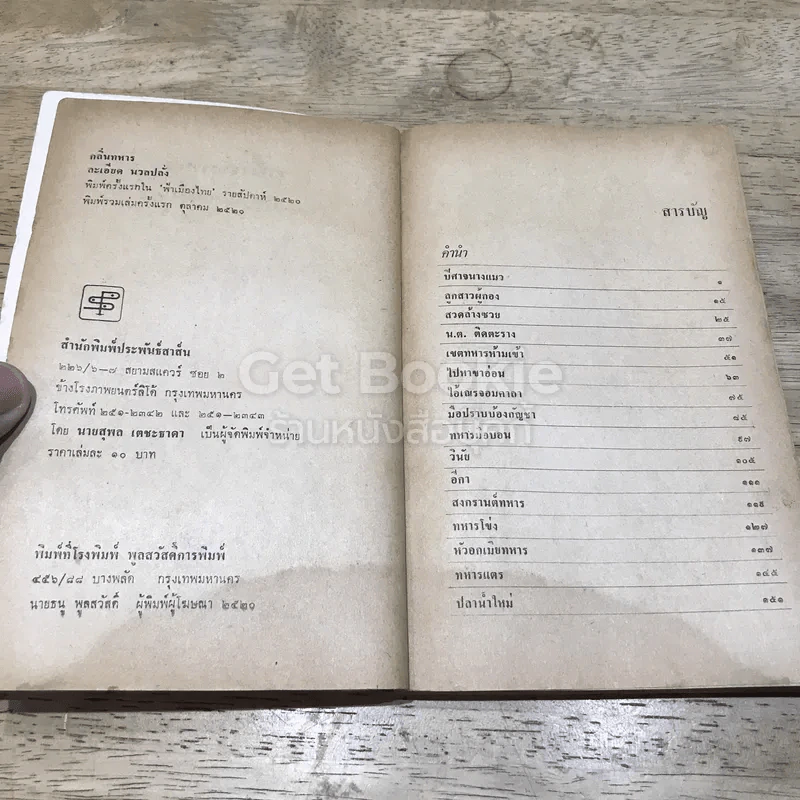 กลิ่นทหาร
ละเอียด นวลปลั่ง
พิมพ์ครั้งแรกใน 'ฟ้าเมืองไทย' รายสัปดาห์ ๒๕๒๐
พิมพ์รวมเล่มครั้งแรก ตุลาคม ๒๕๒๐
สำนักพิมพ์ประพันธ์สาส์น
๒๒๖/๖–๘ สยามสแควร์ ซอย ๒
ข้างโรงภาพยนตร์ลิโด้ กรุงเทพมหานคร
โทรศัพท์ ๒๕๑–๒๓๔๒ และ ๒๕๑–๒๓๔๓
โดย นายสุพล เตชะธาดา เป็นผู้จัดพิมพ์จำหน่าย
ราคาเล่มละ ๑๐ บาท
พิมพ์ที่โรงพิมพ์ พูลสวัสดิ์การพิมพ์
๔๕๖/๘๘ บางพลัด กรุงเทพมหานคร
นายธนู พูลสวัสดิ์ ผู้พิมพ์ผู้โฆษณา ๒๕๒๐
สารบัญ
คำนำ
ปีศาจนางแมว ๑
ลูกสาวผู้กอง ๑๕
สวดล้างซวย ๒๕
น.ต. ติดตะราง ๓๗
เขตทหารห้ามเข้า ๕๑
ไปหาขาอ่อน ๖๓
ไอ้เณรจอมคาถา ๗๕
มือปราบบ้องกัญชา ๘๕
ทหารมือบอน ๙๗
วินัย ๑๐๕
อีกา ๑๑๑
สงกรานต์ทหาร ๑๑๘
ทหารโข่ง ๑๒๗
หัวอกเมียทหาร ๑๓๗
ทหารแตร ๑๔๕
ปลาน้ำใหม่ ๑๕๑
Get Bookie
ร้านหนังสือบุ๊คกี้